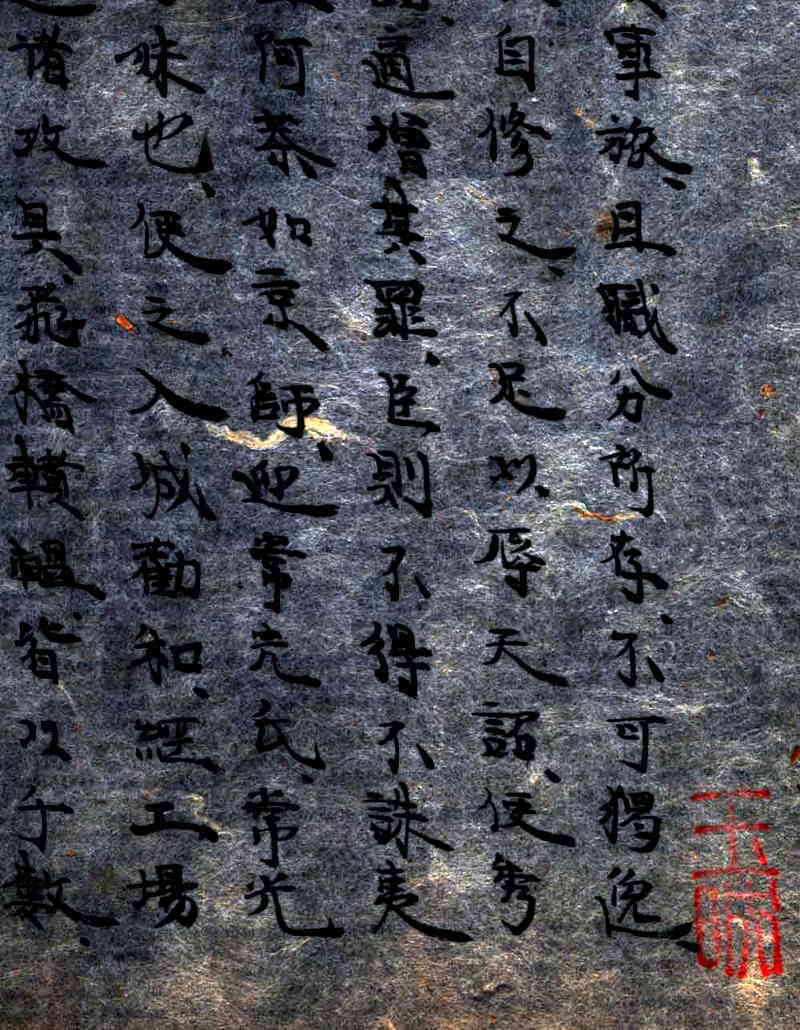 軍旅、且職分所存、不可獨逸、
自修之、不足以辱天詔、使秀
適增其罪、臣則不得不誅夷
阿茶如京師、迎常光氏、常光
妹也、使之入城勸和、經工場
諸攻具、飛橋轒轀、皆以千數、